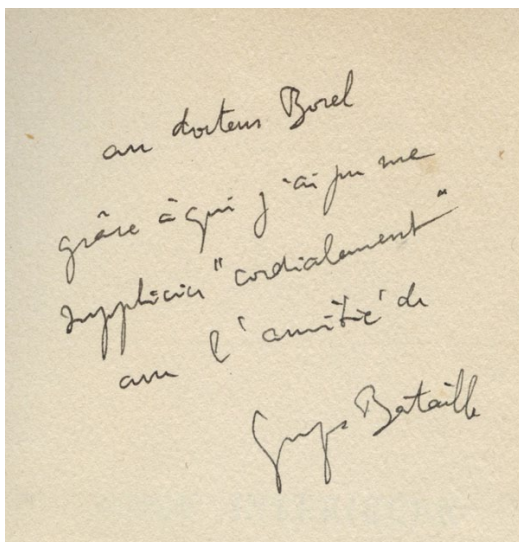 au docteur Borel
grâce à qui j'ai pu me
supplicier "cordialement"
avec l'amitié de
Georges Bataille